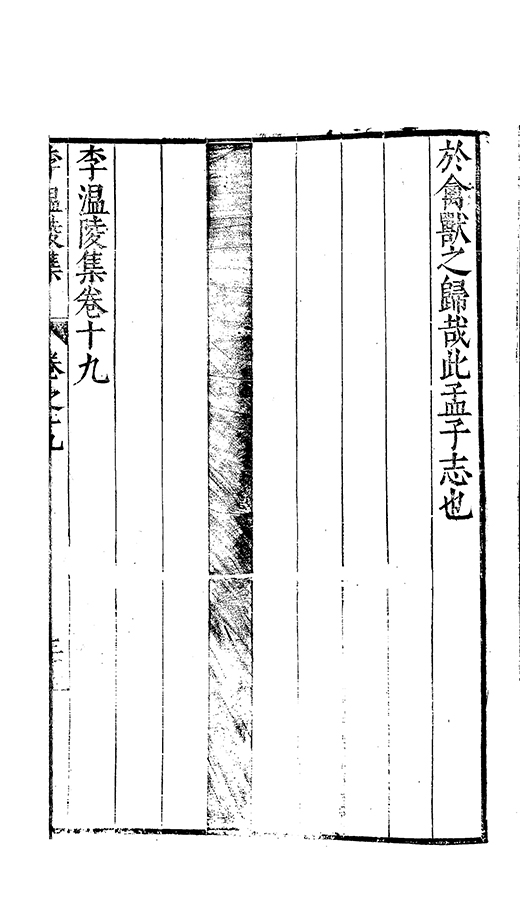 於禽獸之歸哉此孟子志也
李温陵集卷十九
李温陵集
卷之十九